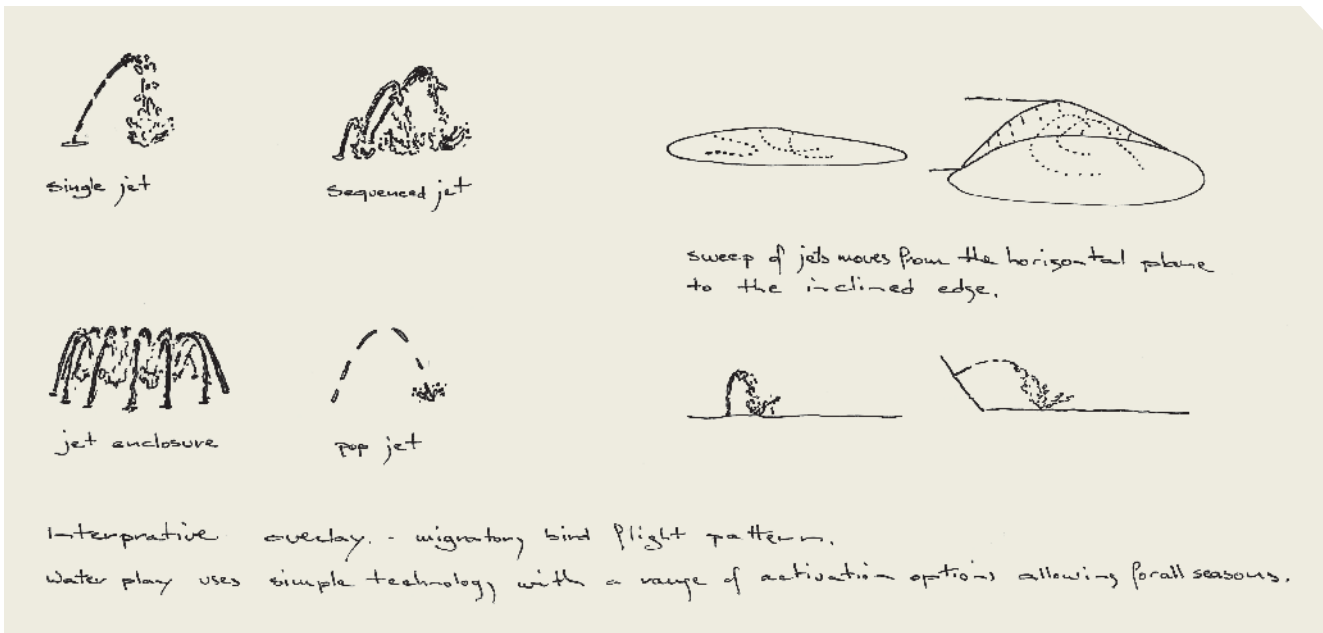 single jet
sequenced jet
sweep of jets moves from the horizontal plane
to the inclined edge.
jet enclosure
pop jet
Interprative overlay. - migratory bird flight pattern.
Water play uses simple technology with a range of activation options allowing for all seasons.